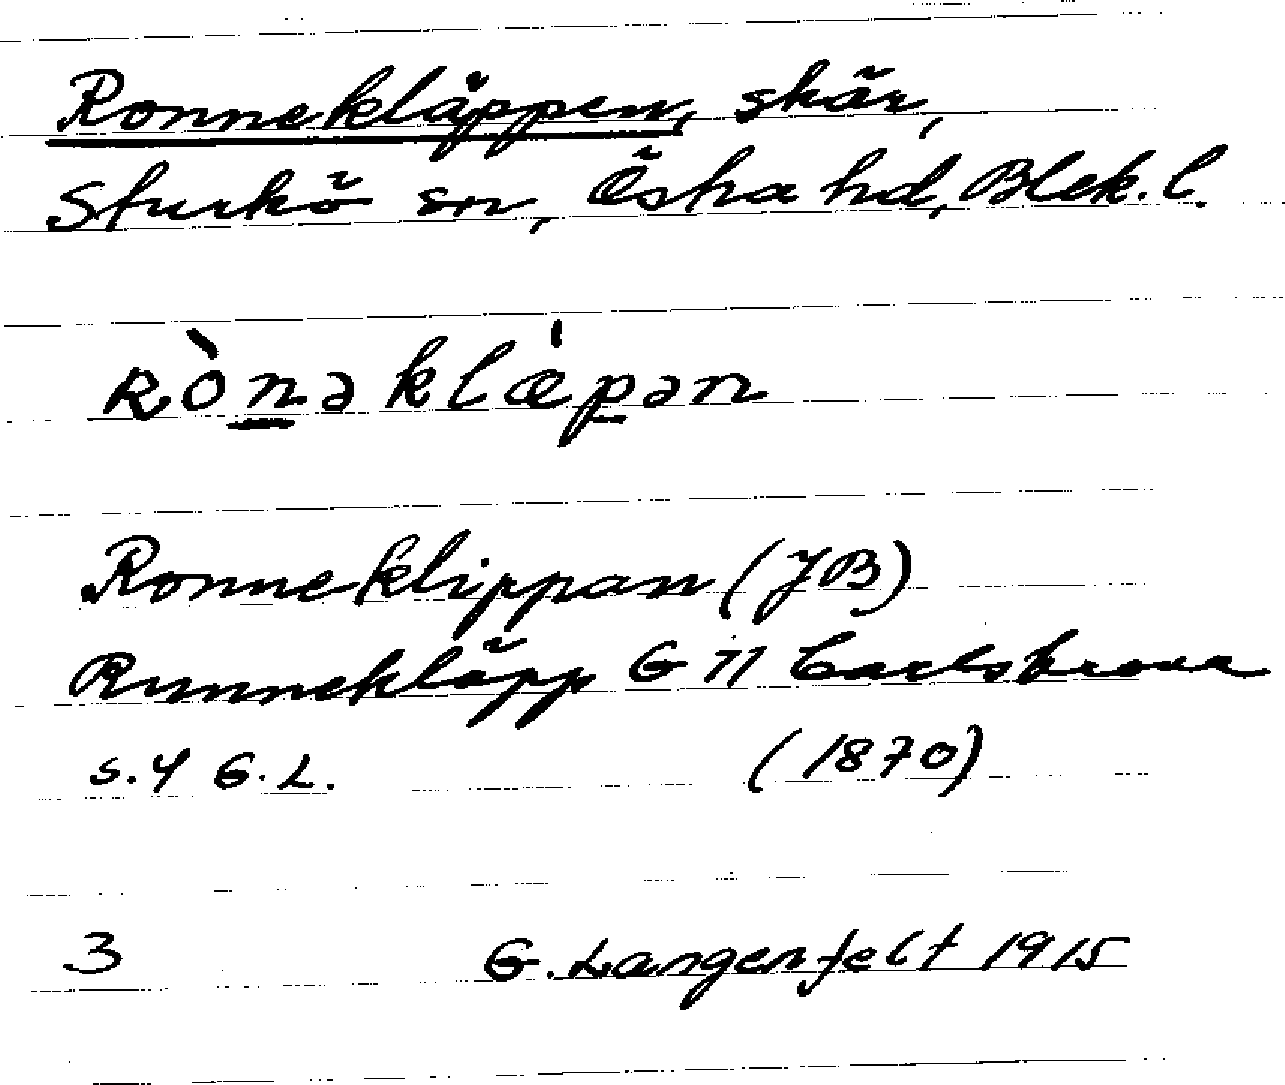 Ronnekläppen, skär,
Sturkö sn, Östra hd, Blek. l.
Rònəklǽpən
Ronneklippan (JB)
Runnekläpp G 71 Carlskrona
s. 4 G. L. (1870)
3 G. Langenfelt 1915